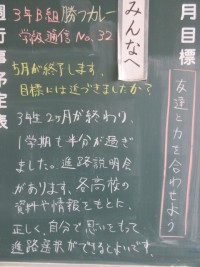 みんなへ
月目標
友達と力を合わせよう
週行事予定表
3年B組 勝つカレー
学級通信 No.32
5月が終了します。
目標には近づきましたか?
3年生2ヶ月が終わり、
1学期も半分が過ぎ
ました。進路説明会
があります。各高校の
資料や情報をもとに、
正しく、自分で思いをもって
進路選択ができるとよいです。